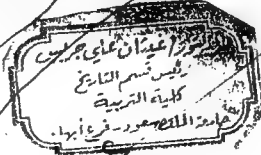 دكتور/غيثان علي جريس
رئيس قسم التاريخ
كلية التربية
جامعة الملك سعود - فرع أبها.